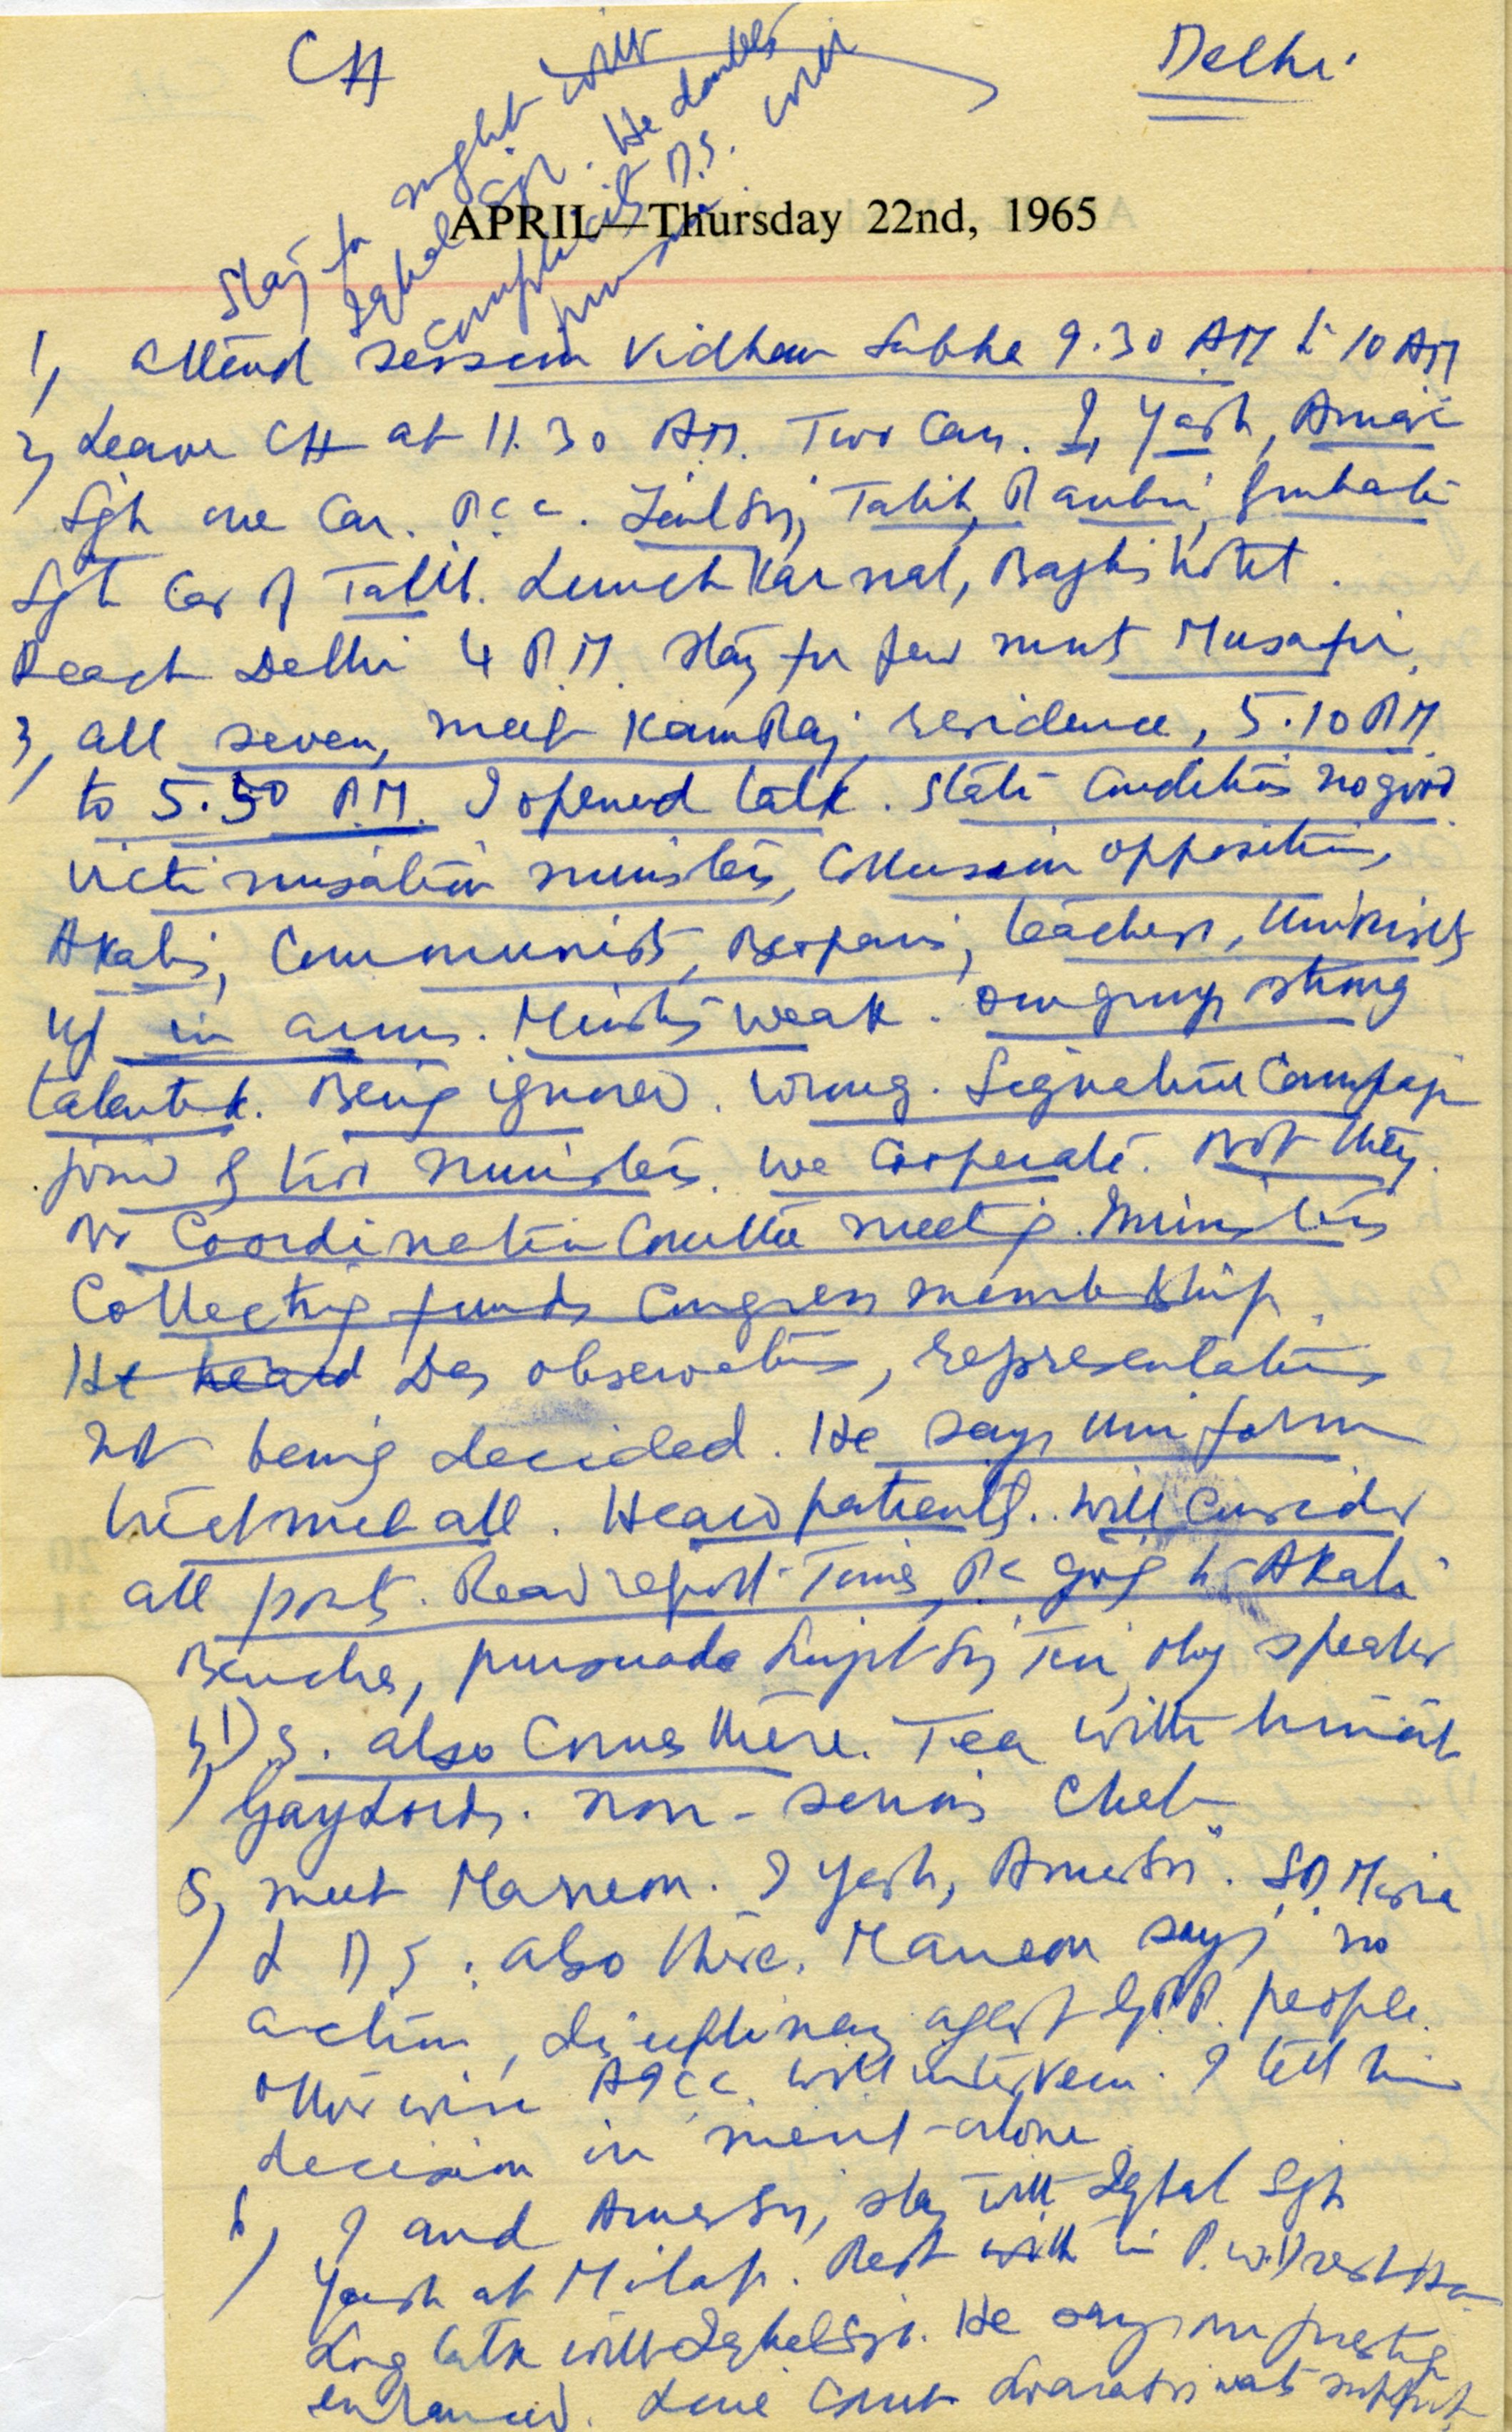 CH
Delhi.
Stay for night with
Iqbal Sgh. He doubts
complicity D.S. with
APRIL—Thursday 22nd, 1965
1, Attend session Vidhan Sabha 9.30 AM to 10 AM
2, Leave CH at 11.30 A.M. Two Cars. I, Yash, Amar
Sgh one Car. P.C.C. Zail Sg, Talib, Ranbir, Gurbakh
Sgh Car of Talib. Lunch Karnal, Hotel.
Reach Delhi 4 P.M. Stay for few mnts Musafir.
3, All seven, meet KamRaj residence, 5.10 PM
to 5.50 P.M. I opened talk. State Condition no good
Victimisation ministers, Collusion opposition,
Akalis, Communists, Beopari, teachers,
up in arms. Ministers weak. Our group strong
talented. Being ignored. Wrong. Signature Campaign
join & ministers. We Cooperate. Not they.
No Coordination Comittee meeting. Ministers
Collecting funds Congress membership.
He heard Das observations, representations
not being decided. He says uniform
treatment all. Heard patiently. Will Consider
all points. Read report Times, P.C going to Akali
Benches, Sg speaker
4, D.S. also Comes there. Tea with him at
Gaylords. Non-serious Chat
5, meet Manneon. I Yash, Amar Sg. S.D. Misra
& D S. also there. Manneon says no
action, disciplinary agst G.P.P. people.
otherwise AICC. will interven. I tell him
decision in merit alone
6, I and Amar Sg, stay with Iqbal Sgh
Yash at Milap. Rest with in P.W.D rest House
Long talk with Iqbal Sgh. He says our prestige
enhanced. Support